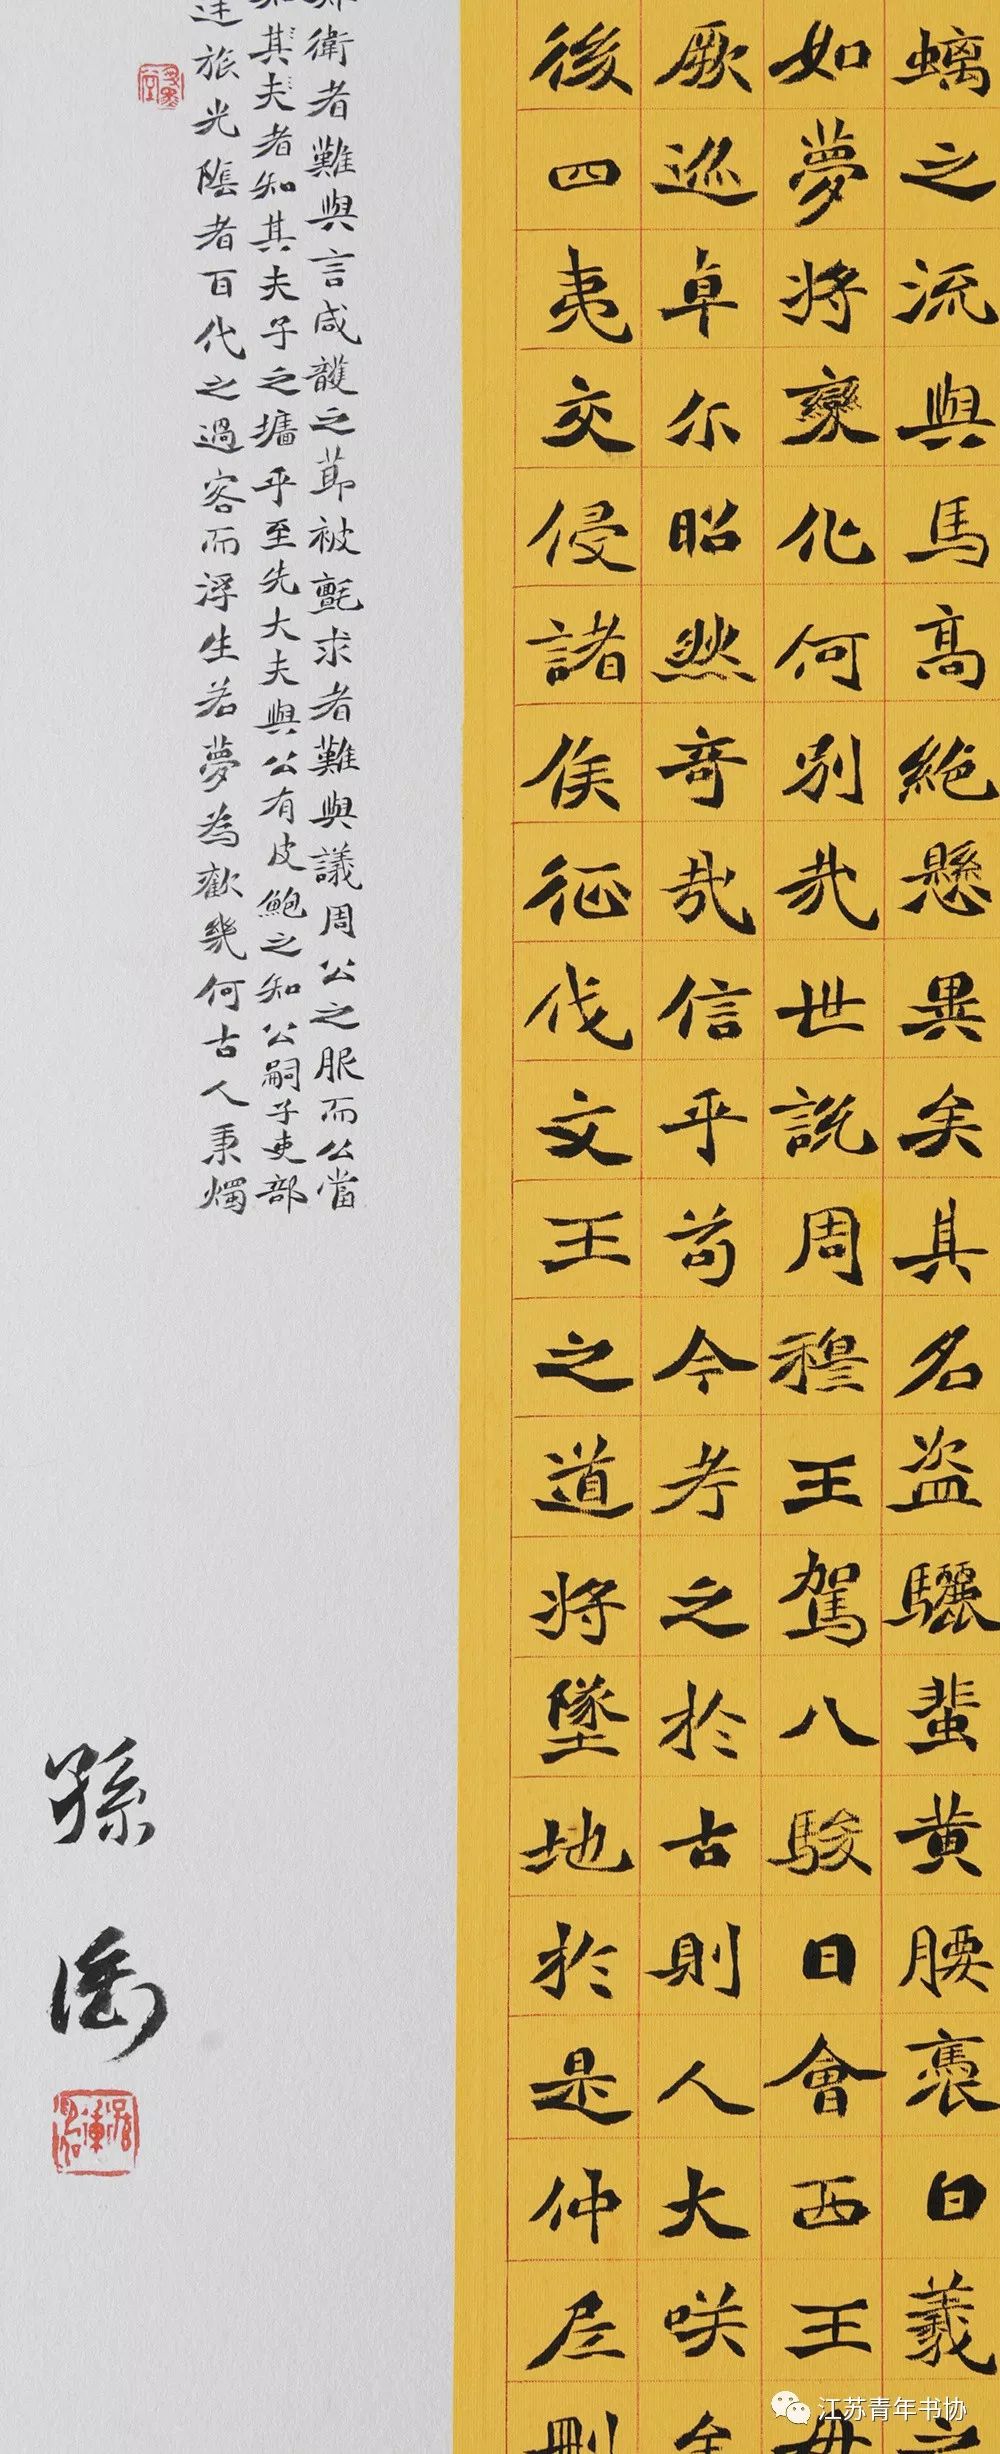 螭之流與馬高絶懸異矣具名盗驪蜚黄腰褭白羲之
如夢將変化何别哉世説周穆王駕八駿日會西王母
厥巡卓尔昭然奇哉信乎苟今考之於古則人大咲
後四夷交侵諸侯征伐文王之道將墜地於是仲尼刪
衛者難與言咸頀之莭被氈求者難與議周公之服而公當
其夫者知其夫子之墻乎至先大夫與公有皮鮑之知公嗣子吏部
逆旅光陰者百代之過客而浮生若夢為歡幾何古人秉燭
孫衛
江苏青年书协